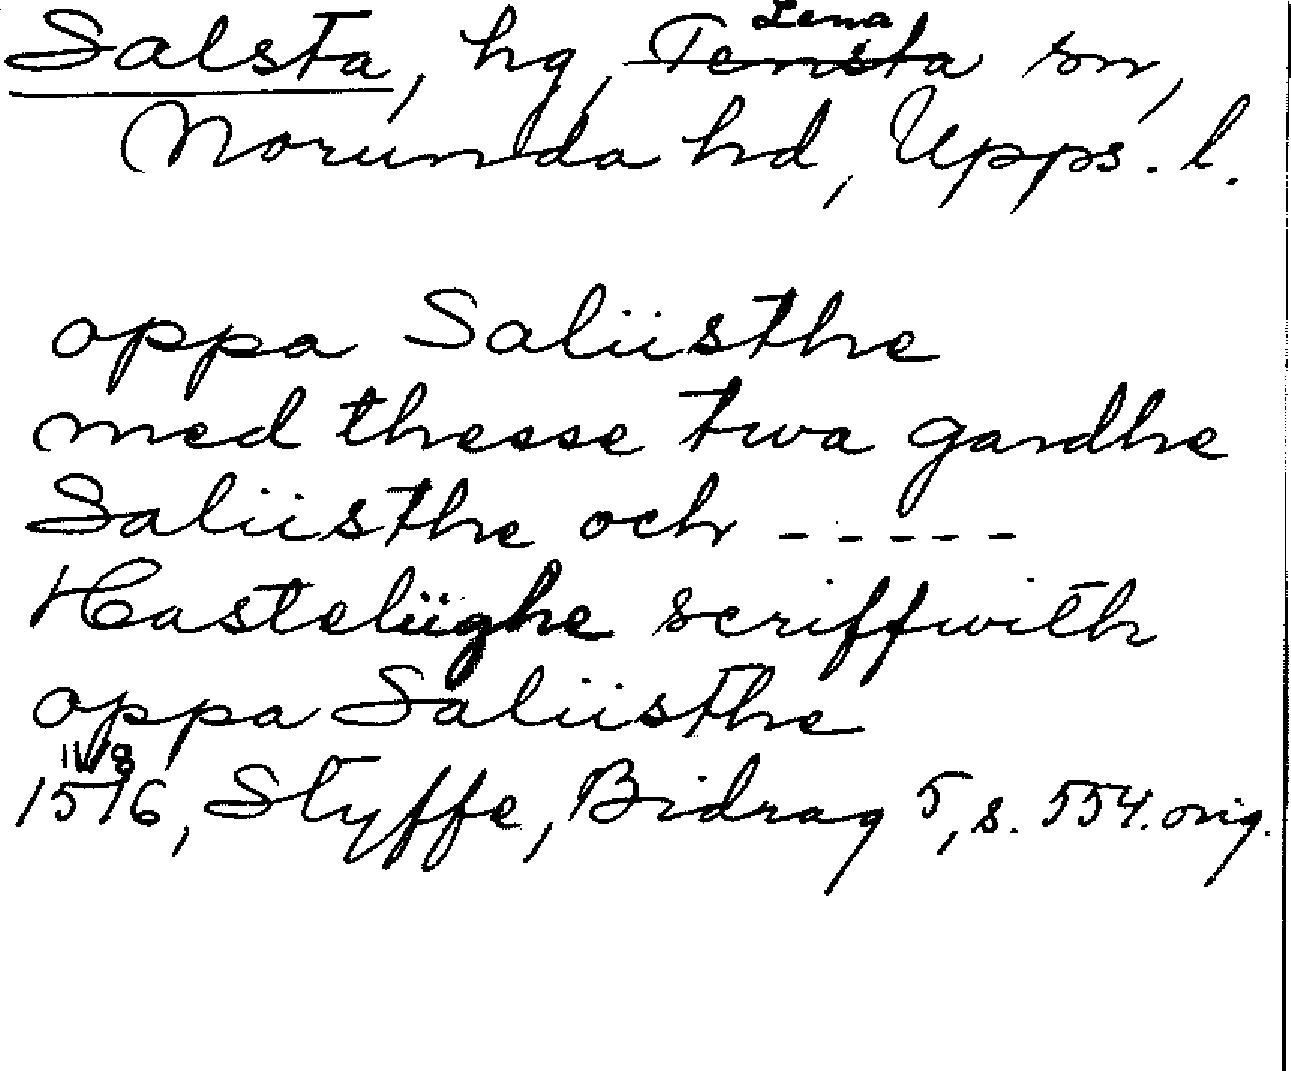 Salsta, hg, Tensta Lena sn,
Norunda hd, Upps. l.
oppa Saliisthe
med thesse twa gardhe
Saliisthe och - - - - -
Hasteliighe scriffwith
oppa Saliisthe
1516, Styffe, Bidrag 5, s. 554. orig.